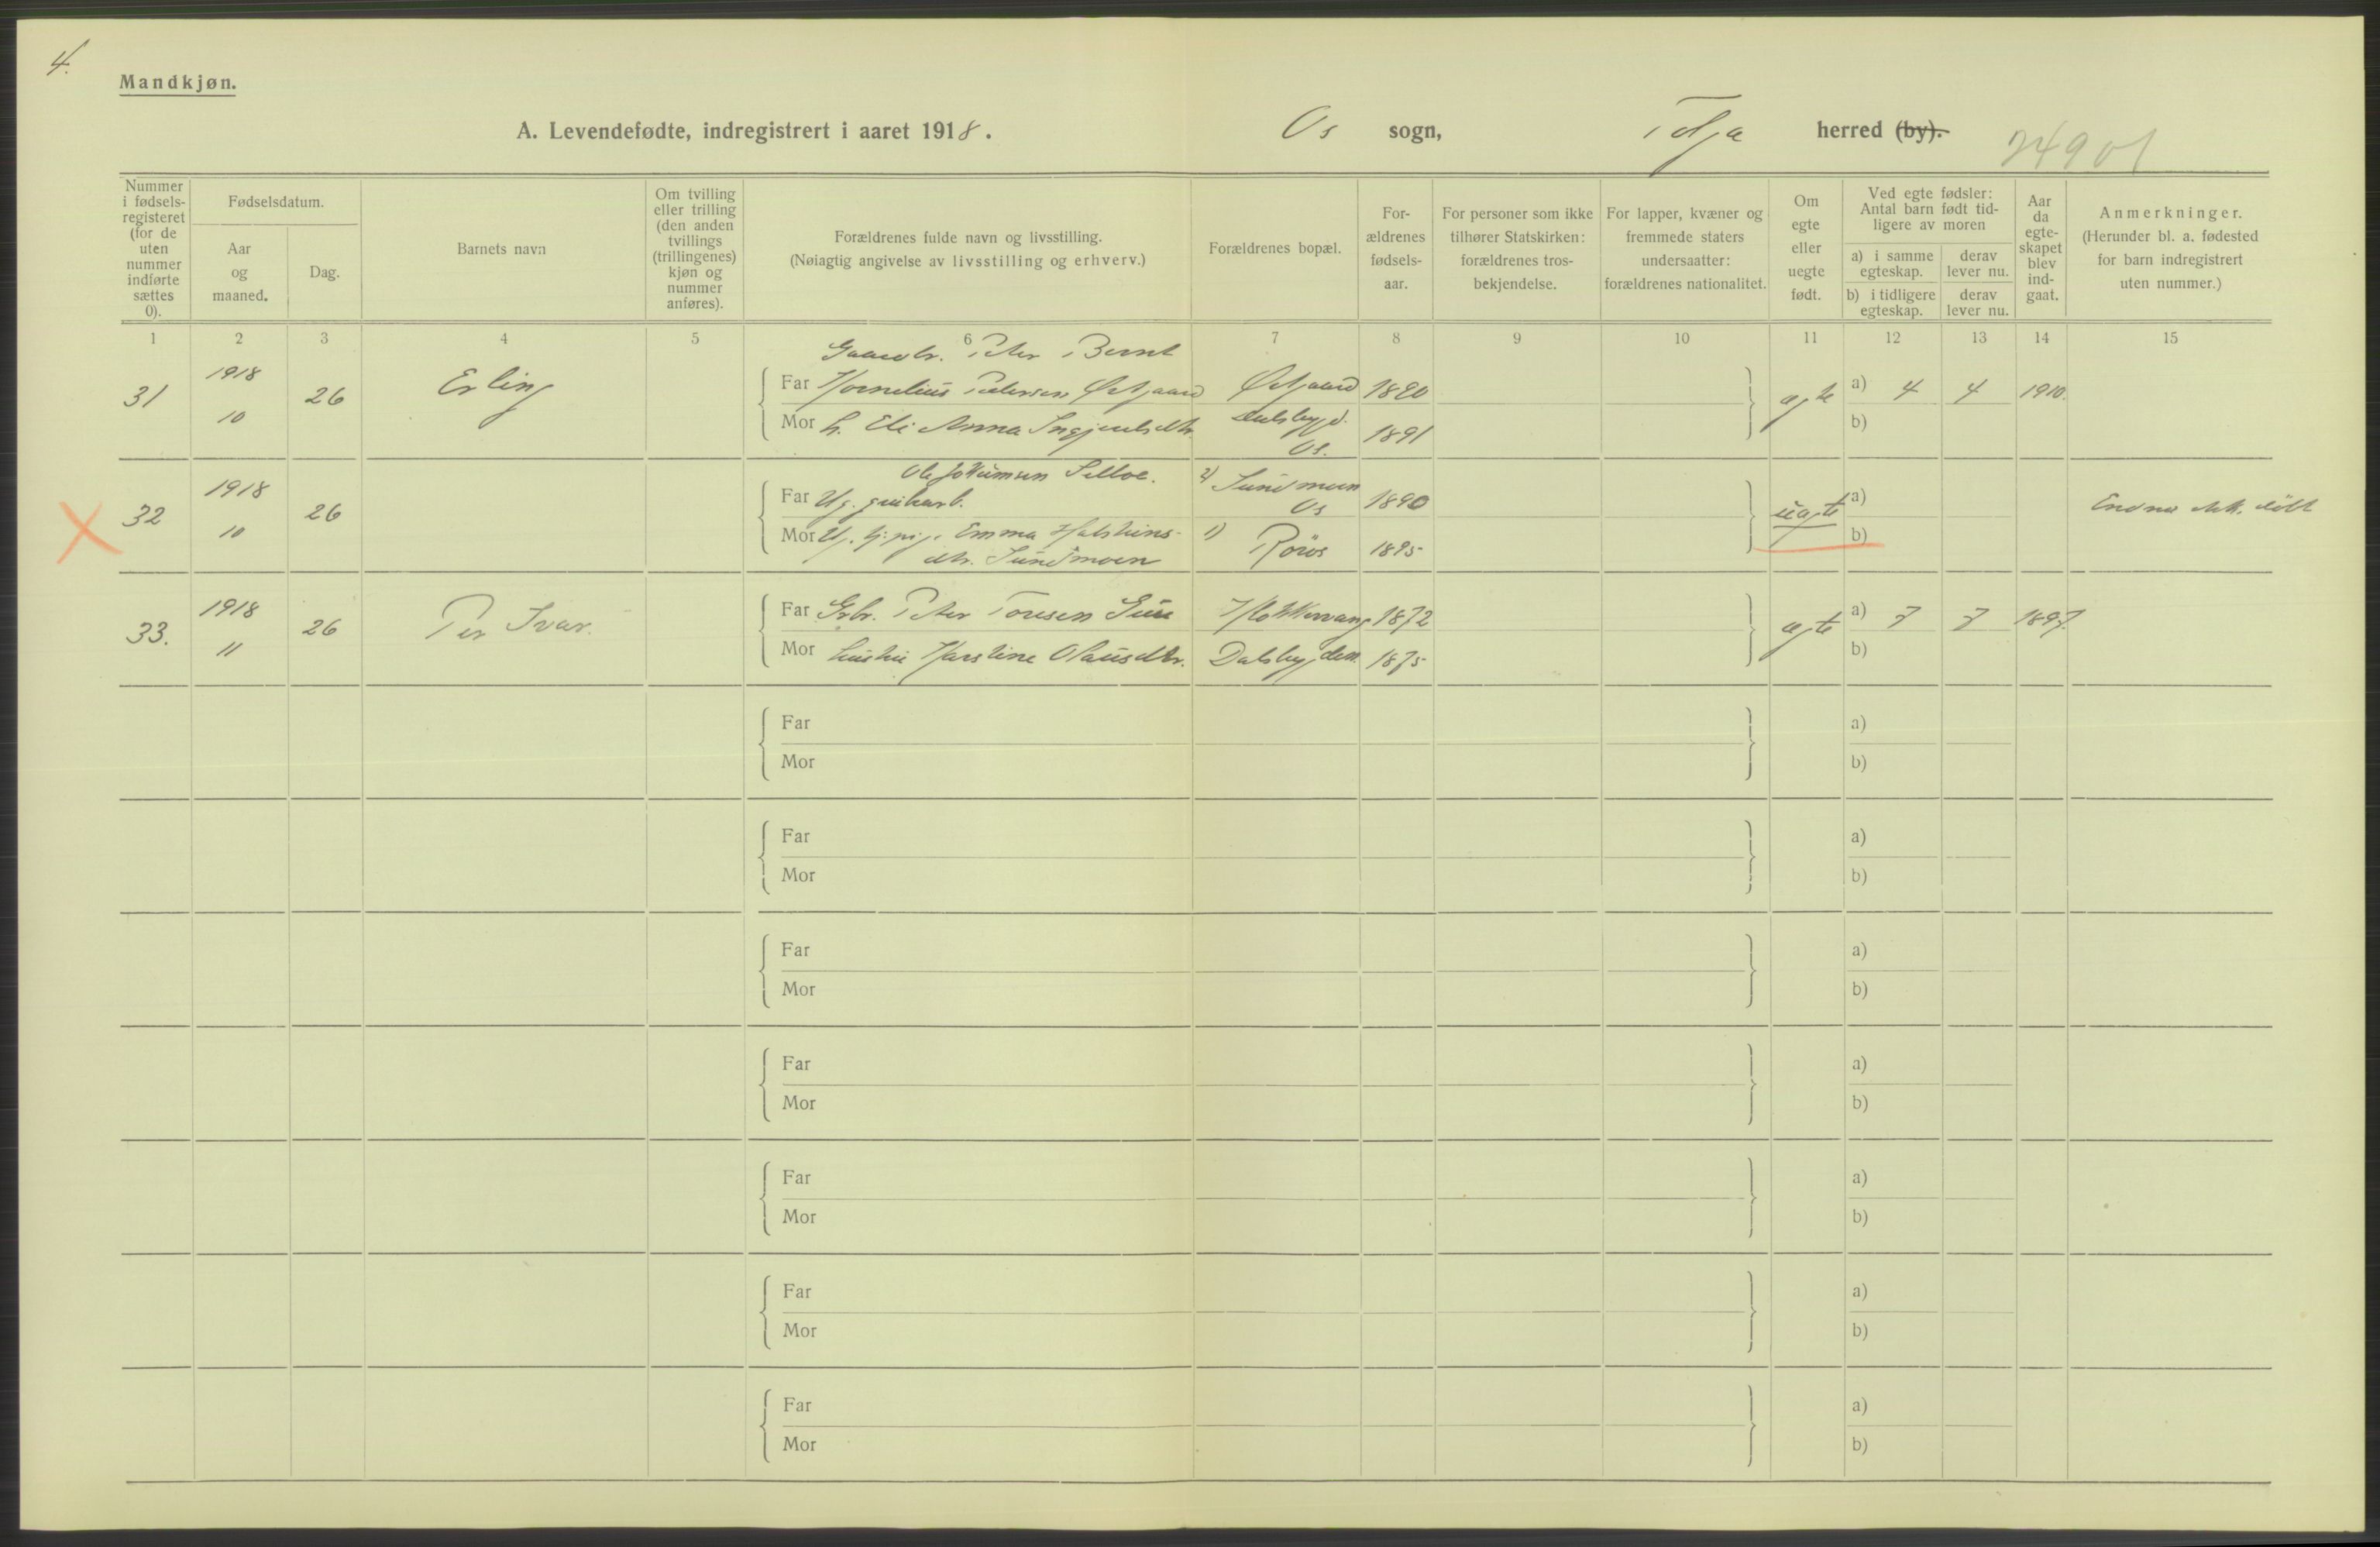 4.
Mandkjøn.
A. Levendefødte, indregistrert i aaret 1918. Os sogn, Tolga herred (by).
24901
Nummer i fødsels-registeret (for de uten nummer indførte sættes 0).
Fødselsdatum.
Aar og maaned.
Dag.
Barnets navn
Om tvilling eller trilling (den anden tvillings (trillingenes) kjøn og nummer anføres).
Forældrenes fulde navn og livsstilling.
(Nøiagtig angivelse av livsstilling og erhverv.)
Forældrenes bopæl.
For-ældrenes fødsels-aar.
For personer som ikke tilhører Statskirken: forældrenes tros-bekjendelse.
For lapper, kvæner og fremmede staters undersaatter: forældrenes nationalitet.
Om egte eller uegte født.
Ved egte fødsler: Antal barn født tid-ligere av moren
a) i samme egteskap.
derav lever nu.
b) i tidligere egteskap.
derav lever nu.
Aar da egte-skapet blev ind-gaat.
Anmerkninger.
(Herunder bl. a. fødested for barn indregistrert uten nummer.)
1 2 3 4 5 6 7 8 9 10 11 12 13 14 15
31 1918 10 26 Erling
Gaardbr. Peter Bernt
Far Kornelius Pedersen Østgaard Østgaard 1890
Mor h. Eli Anna Ingjeuls dtr. Dalsbygd. Os. 1891
egte a) 4 4 1910.
b)
32 1918 10 26
Ole Jokumsen
Far Ug. 2) Sundmoen Os 1890
Mor Ug. Emma Halstins-
dtr. Sundmoen 1) Røros 1895
uegte a)
b)
Endnu ikke døbt
33. 1918 11 26 Per Ivar.
Far Gbr. Peter Toresen 1872
Mor hustru Karstine Olausdtr. Dalsbygden. 1875
egte a) 7 7 1897.
b)
Far a)
Mor b)
Far a)
Mor b)
Far a)
Mor b)
Far a)
Mor b)
Far a)
Mor b)
Far a)
Mor b)
Far a)
Mor b)